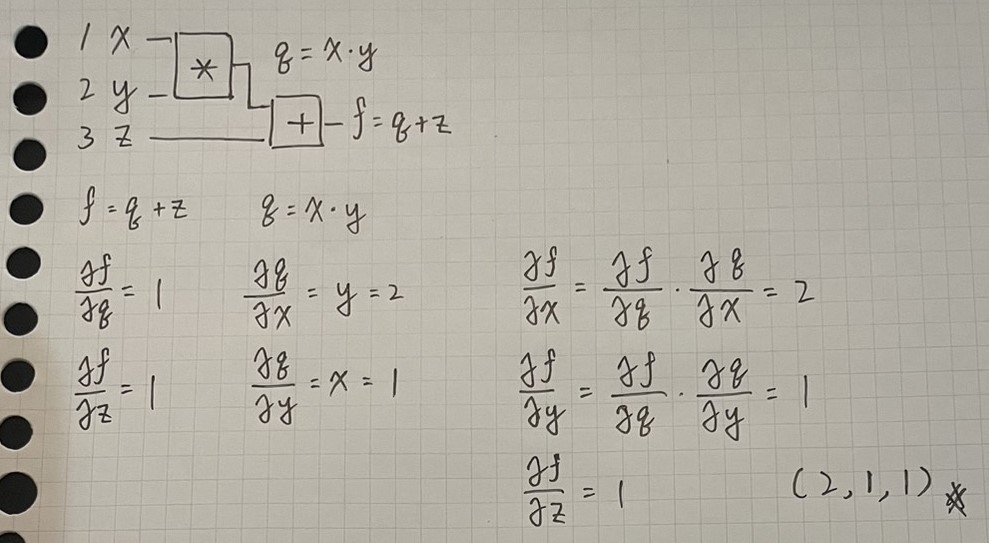 1 x
* q = x · y
2 y
3 z + f = q + z
f = q + z q = x · y
∂f/∂q = 1 ∂q/∂x = y = 2 ∂f/∂x = ∂f/∂q · ∂q/∂x = 2
∂f/∂z = 1 ∂q/∂y = x = 1 ∂f/∂y = ∂f/∂q · ∂q/∂y = 1
∂f/∂z = 1 (2, 1, 1)